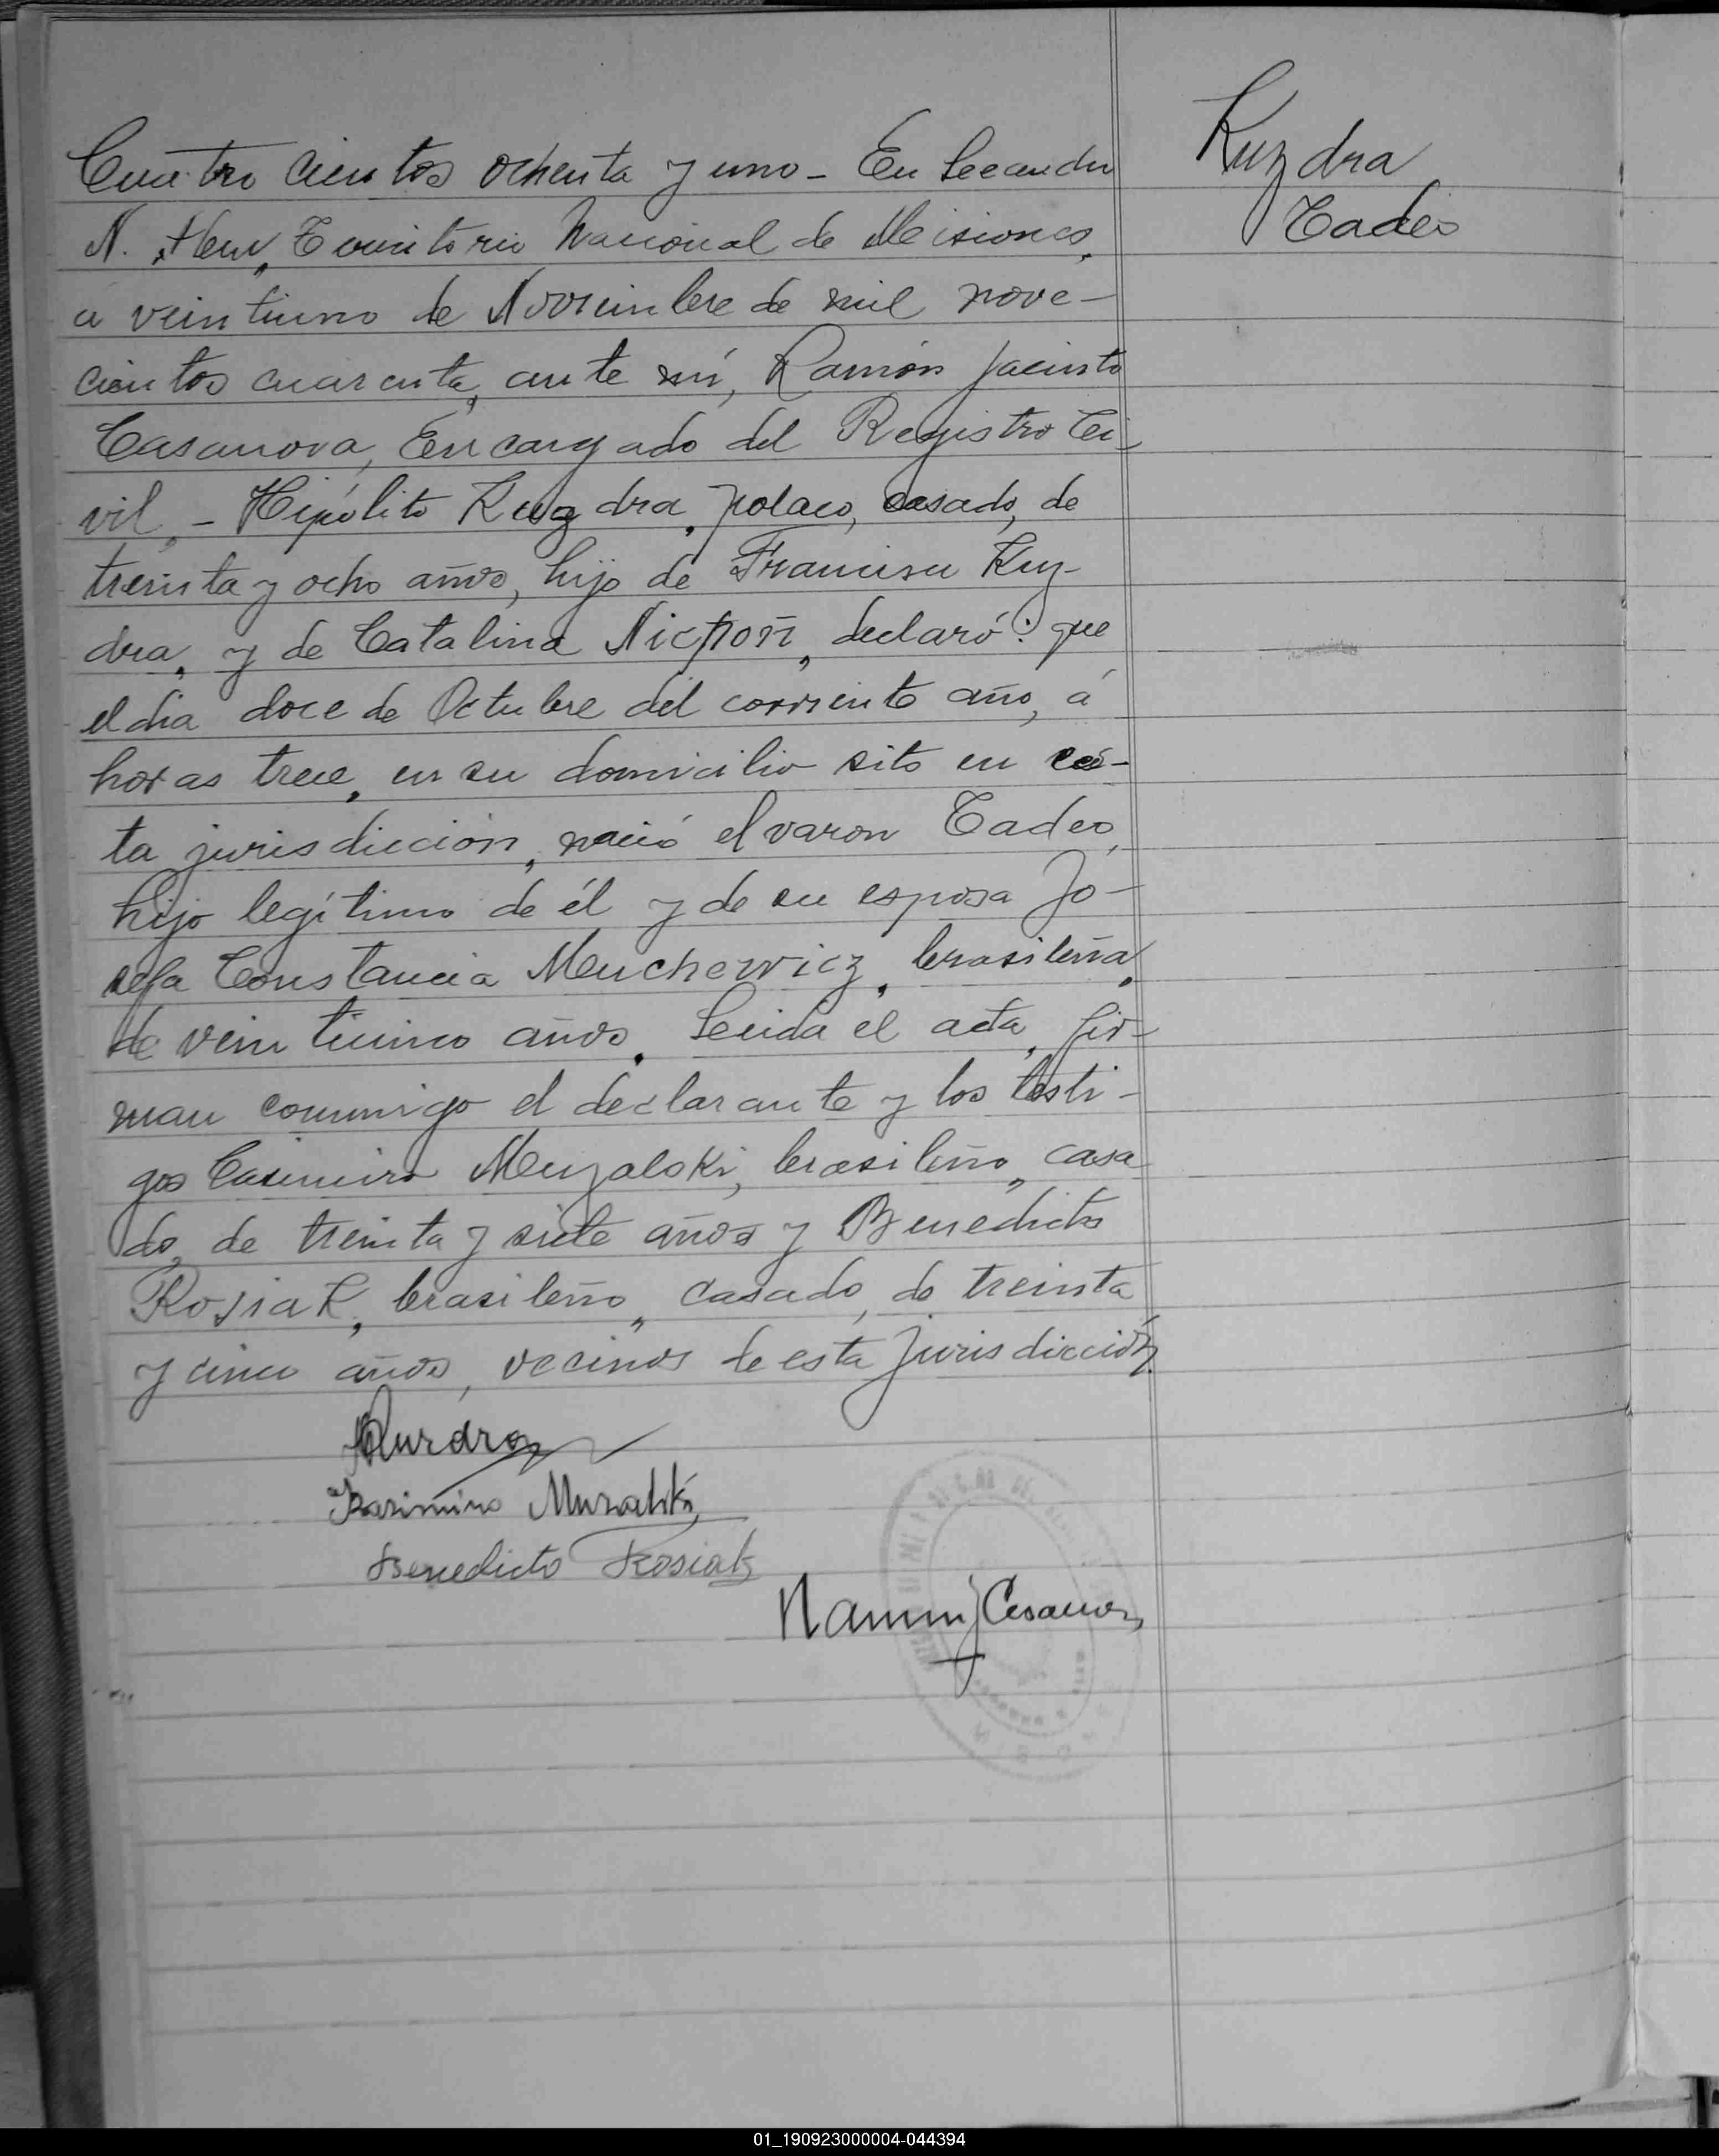 Kuzdra
Tadeo
Cuatro cientos ochenta y uno - En Leandro
N. Alem, Territorio Nacional de Misiones,
á veintiuno de Noviembre de mil nove-
cientos cuarenta, ante mí, Ramón Jacinto
Casanova, Encargado del Registro Ci-
vil, - Hipólito Kuzdra, polaco, casado, de
treinta y ocho años, hijo de Francisco Kuz-
dra, y de Catalina declaró: que
el dia doce de Octubre del corriente año, á
horas trece, en su domicilio sito en és-
ta jurisdicción, nació el varon Tadeo,
hijo legítimo de él y de su esposa Jo-
sefa Constancia Muchewicz, brasileña,
de veinticinco años. Leida el acta, fir-
man conmigo el declarante y los testi-
gos Casimiro Muzalski, brasileño, casa
do, de treinta y siete años y Benedicto
Rosiak, brasileño, casado, de treinta
y cinco años, vecinos de esta jurisdicción
Kurdra
Kazimiro Muzalski
Benedicto Rosiak
Ramón J Casanova
01_190923000004-044394